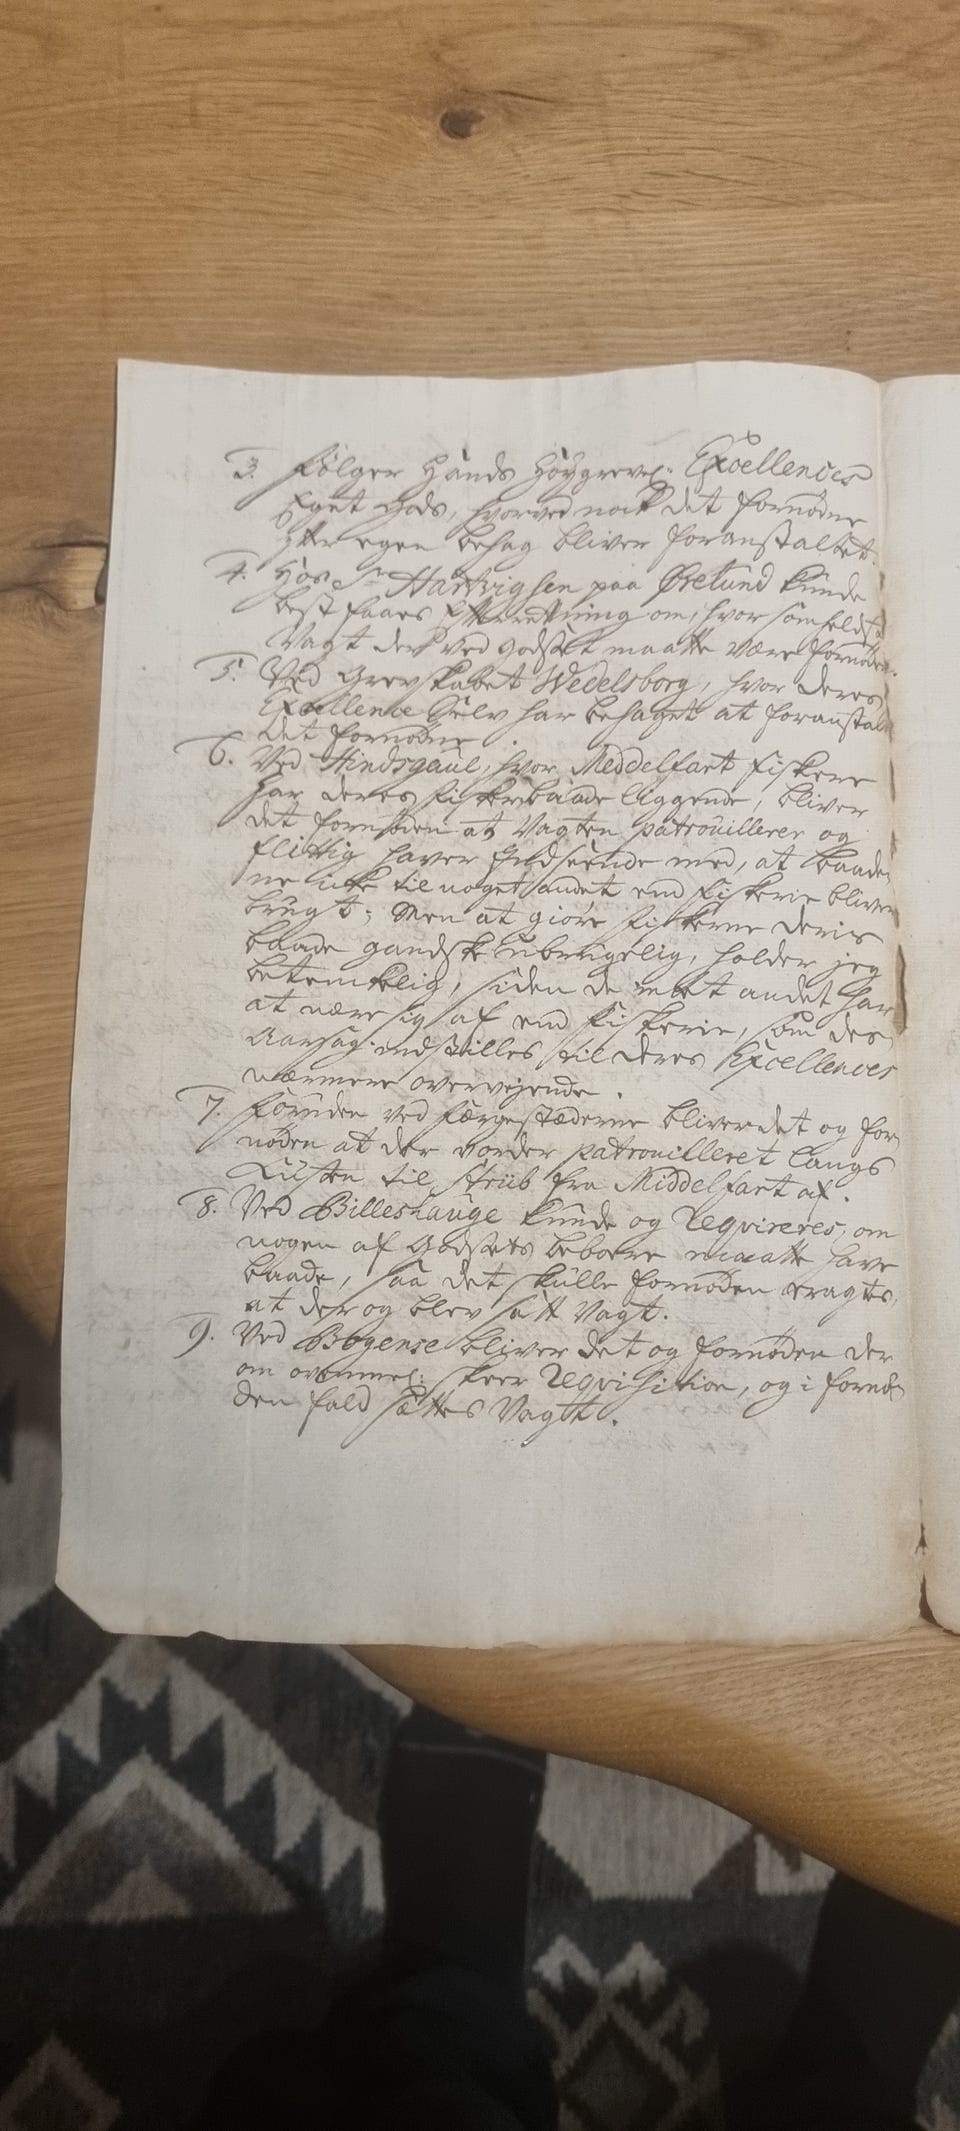 3. Følger Hands Høygrevel: Excellences
Eget Gods, hvorved nok det fornødne
efter egen behag bliver foranstaltet.
4. Hos Sr Hartvigsen paa Ørelund kunde
best faaes Efterretning om, hvor somhelst
Vagt der ved godset maatte være fornøden.
5. Ved Grevskabet Wedelsborg, hvor deres
Excellence Selv har behaget at foranstalte
det fornødne.
6. Ved Hindsgaul, hvor Meddelfart fiskere
har deres fiskerbaade liggende, bliver
det fornøden at Vagten patrouillerer og
flittig haver Indseende med, at baade-
ne icke til noget andet end fiskerie bliver
brugt; Men at giøre fiskerne deris
baade gandske ubrugelig, holder jeg
betenkelig, siden de intet andet har
at nære sig af end fiskerie, som des
Aarsag indstilles til deres Excellences
nærmere overvejende.
7. Foruden ved færgestæderne bliver det og for-
nøden at der vorder patrouilleret langs
Custen til Striib fra Middelfart af.
8. Ved Billeshauge kunde og Reqvireres, om
nogen af Godsets beboere maatte have
baade, saa det skulle fornøden eragtes,
at der og blev satt Vagt.
9. Ved Bogense bliver det og fornøden der
om ovenmel: skeer Reqvisition, og i fornø-
den fald sættes Vagtt.